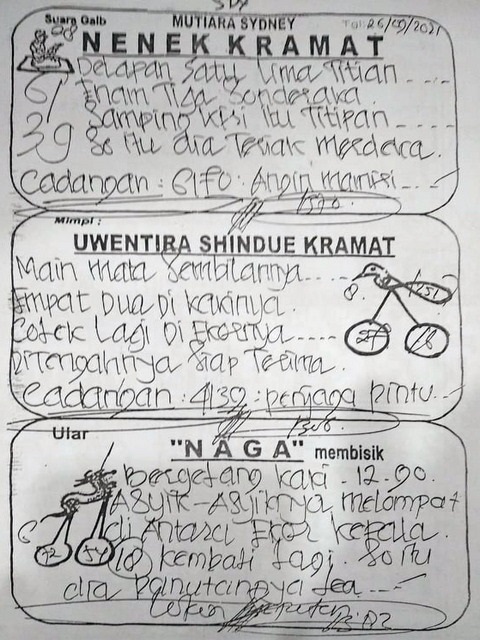 SDY
Suara Gaib MUTIARA SYDNEY Tgl: 26/09/2021
08
NENEK KRAMAT
Delapan Satu Lima Titian
61 Enam Tiga Sonderaka.
39 Samping Kisi Itu Titipan
So Itu dia Teriak merdeka.
Cadangan: 6170: Angin mamiri
Mimpi:
UWENTIRA SHINDUE KRAMAT
Main mata Sembilannya
Empat Dua Di kakinya.
Colek Lagi Di Ekornya
Ditengahnya Siap Terima.
8 27 18
Cadangan: 4139: penjaga pintu
Ular
"NAGA" membisik
Bergetang kaki. 12.90.
ASyik-ASyiknya melompat
6 di Antara Ekor kepala.
72 54 18 kembali lagi. So itu
dia panutannya